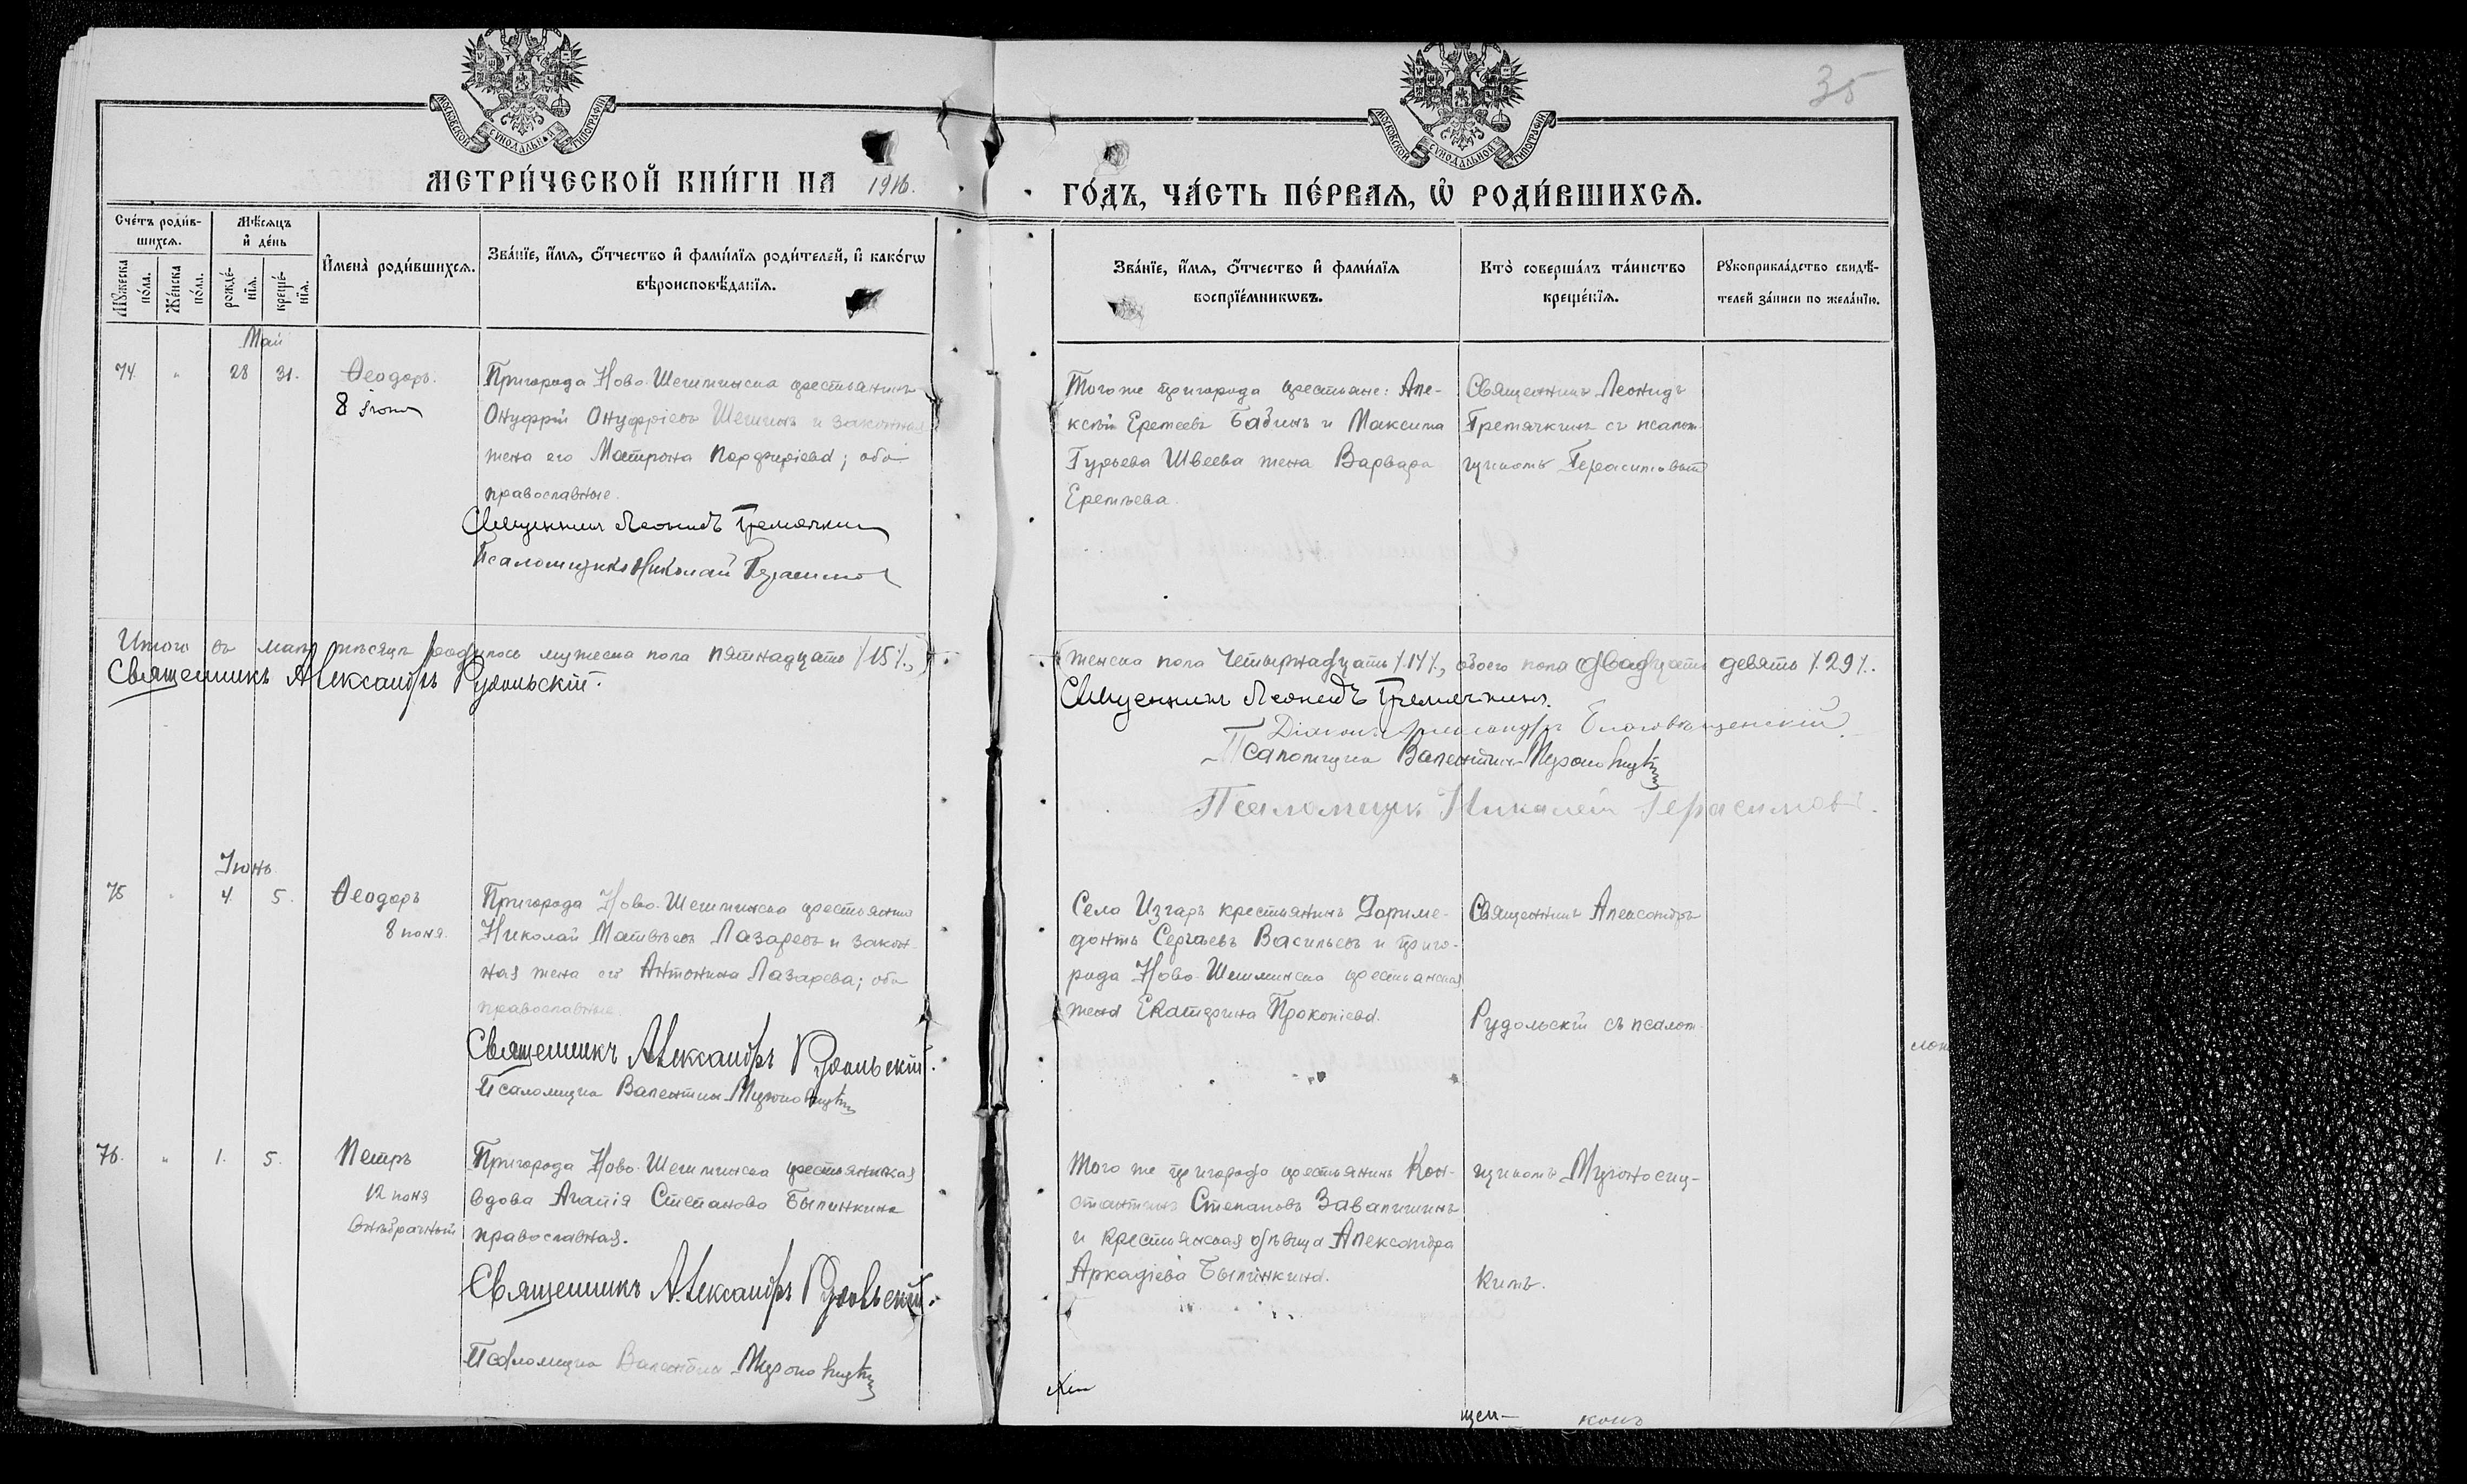 35
МОСКОВСКОЙ СѴНОДАЛЬНОЙ ТИПОГРАФІИ
МОСКОВСКОЙ СѴНОДАЛЬНОЙ ТИПОГРАФІИ
МЕТРИ́ЧЕСКОЙ КНИ́ГИ НА 1916.
ГО́ДЪ, ЧА́СТЬ ПЕ́РВАѦ, Ѡ҆ РОДИ́ВШИХСѦ.
Сче́тъ роди́в-
шихсѧ.
Мѣ́сѧцъ
и҆ де́нь
Мꙋ́жеска по́ла.
Же́нска по́ла.
рожде́-
нїѧ.
креще́-
нїѧ.
И҆мена̀ роди́вшихсѧ.
Зва́нїе, и҆́мѧ, ѻ҆́тчество и҆ фами́лїѧ роди́телей, и҆ како́гѡ
вѣроисповѣ́данїѧ.
Зва́нїе, и҆́мѧ, ѻ҆́тчество и҆ фами́лїѧ
воспрїе́мникѡвъ.
Кто̀ соверша́лъ та́инство
креще́нїѧ.
Рꙋкоприкла́дство свидѣ́-
телей за́писи по жела́нїю.
Май
74. " 28 31. Ѳеодоръ.
8 Іюня
Пригорода Ново-Шешминска крестьянинъ
Онуфрій Онуфріевъ Шешинъ и законная
жена его Матрона Порфиріева; оба
православные.
Священникъ Леонидъ Гремячкин
Псаломщикъ Николай Герасимов
Того же пригорода крестьяне: Але-
ксѣй Еремеевъ Бабинъ и Максима
Гурьева Швеева жена Варвара
Еремѣева.
Священникъ Леонидъ
Гремячкинъ съ псалом-
щикомъ Герасимовым
Итого въ маѣ мѣсяцѣ родилось мужеска пола пятнадцать /15/.,
женска пола четырнадцать /14/., обоего пола двадцать девять /29/.
Священникъ Александръ Рудольскій.
Священникъ Леонидъ Гремячкинъ.
Діаконъ Александръ Благовѣщенскій.
Псаломщикъ Валентин
Псаломщик Николай Герасимовъ.
Іюнь
75 " 4. 5. Ѳеодоръ
8 июня.
Пригорода Ново-Шешминска крестьянинъ
Николай Матвѣевъ Лазаревъ и закон-
ная жена его Антонина Лазарева; оба
православные.
Священникъ Александръ Рудольскій.
Псаломщикъ Валентин
Села Изгаръ крестьянинъ Дориме-
донтъ Сергѣевъ Васильевъ и приго-
рода Ново-Шешминска крестьянская
жена Екатерина Прокопіева.
Священникъ Александръ
Рудольскій съ псалом-
76. " 1. 5. Петръ
12 июня
внѣбрачный
Пригорода Ново-Шешминска крестьянская
вдова Агапія Степанова Былинкина
православная.
Священникъ Александръ Рудольскій.
Псаломщикъ Валентин
Того же пригорода крестьянинъ Кон-
стантинъ Степановъ Завалишинъ
и крестьянская дѣвица Александра
Аркадіева Былинкина.
щикомъ Мироносиц-
кимъ.
щен- комъ